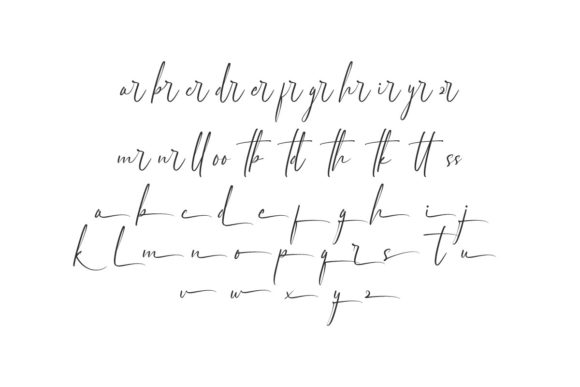 ar br cr dr er fr gr hr ir yr zr
mr nr ll oo tb td th tk tt ss
a b c d e f g h i j
k l m n o p q r s t u
v w x y z